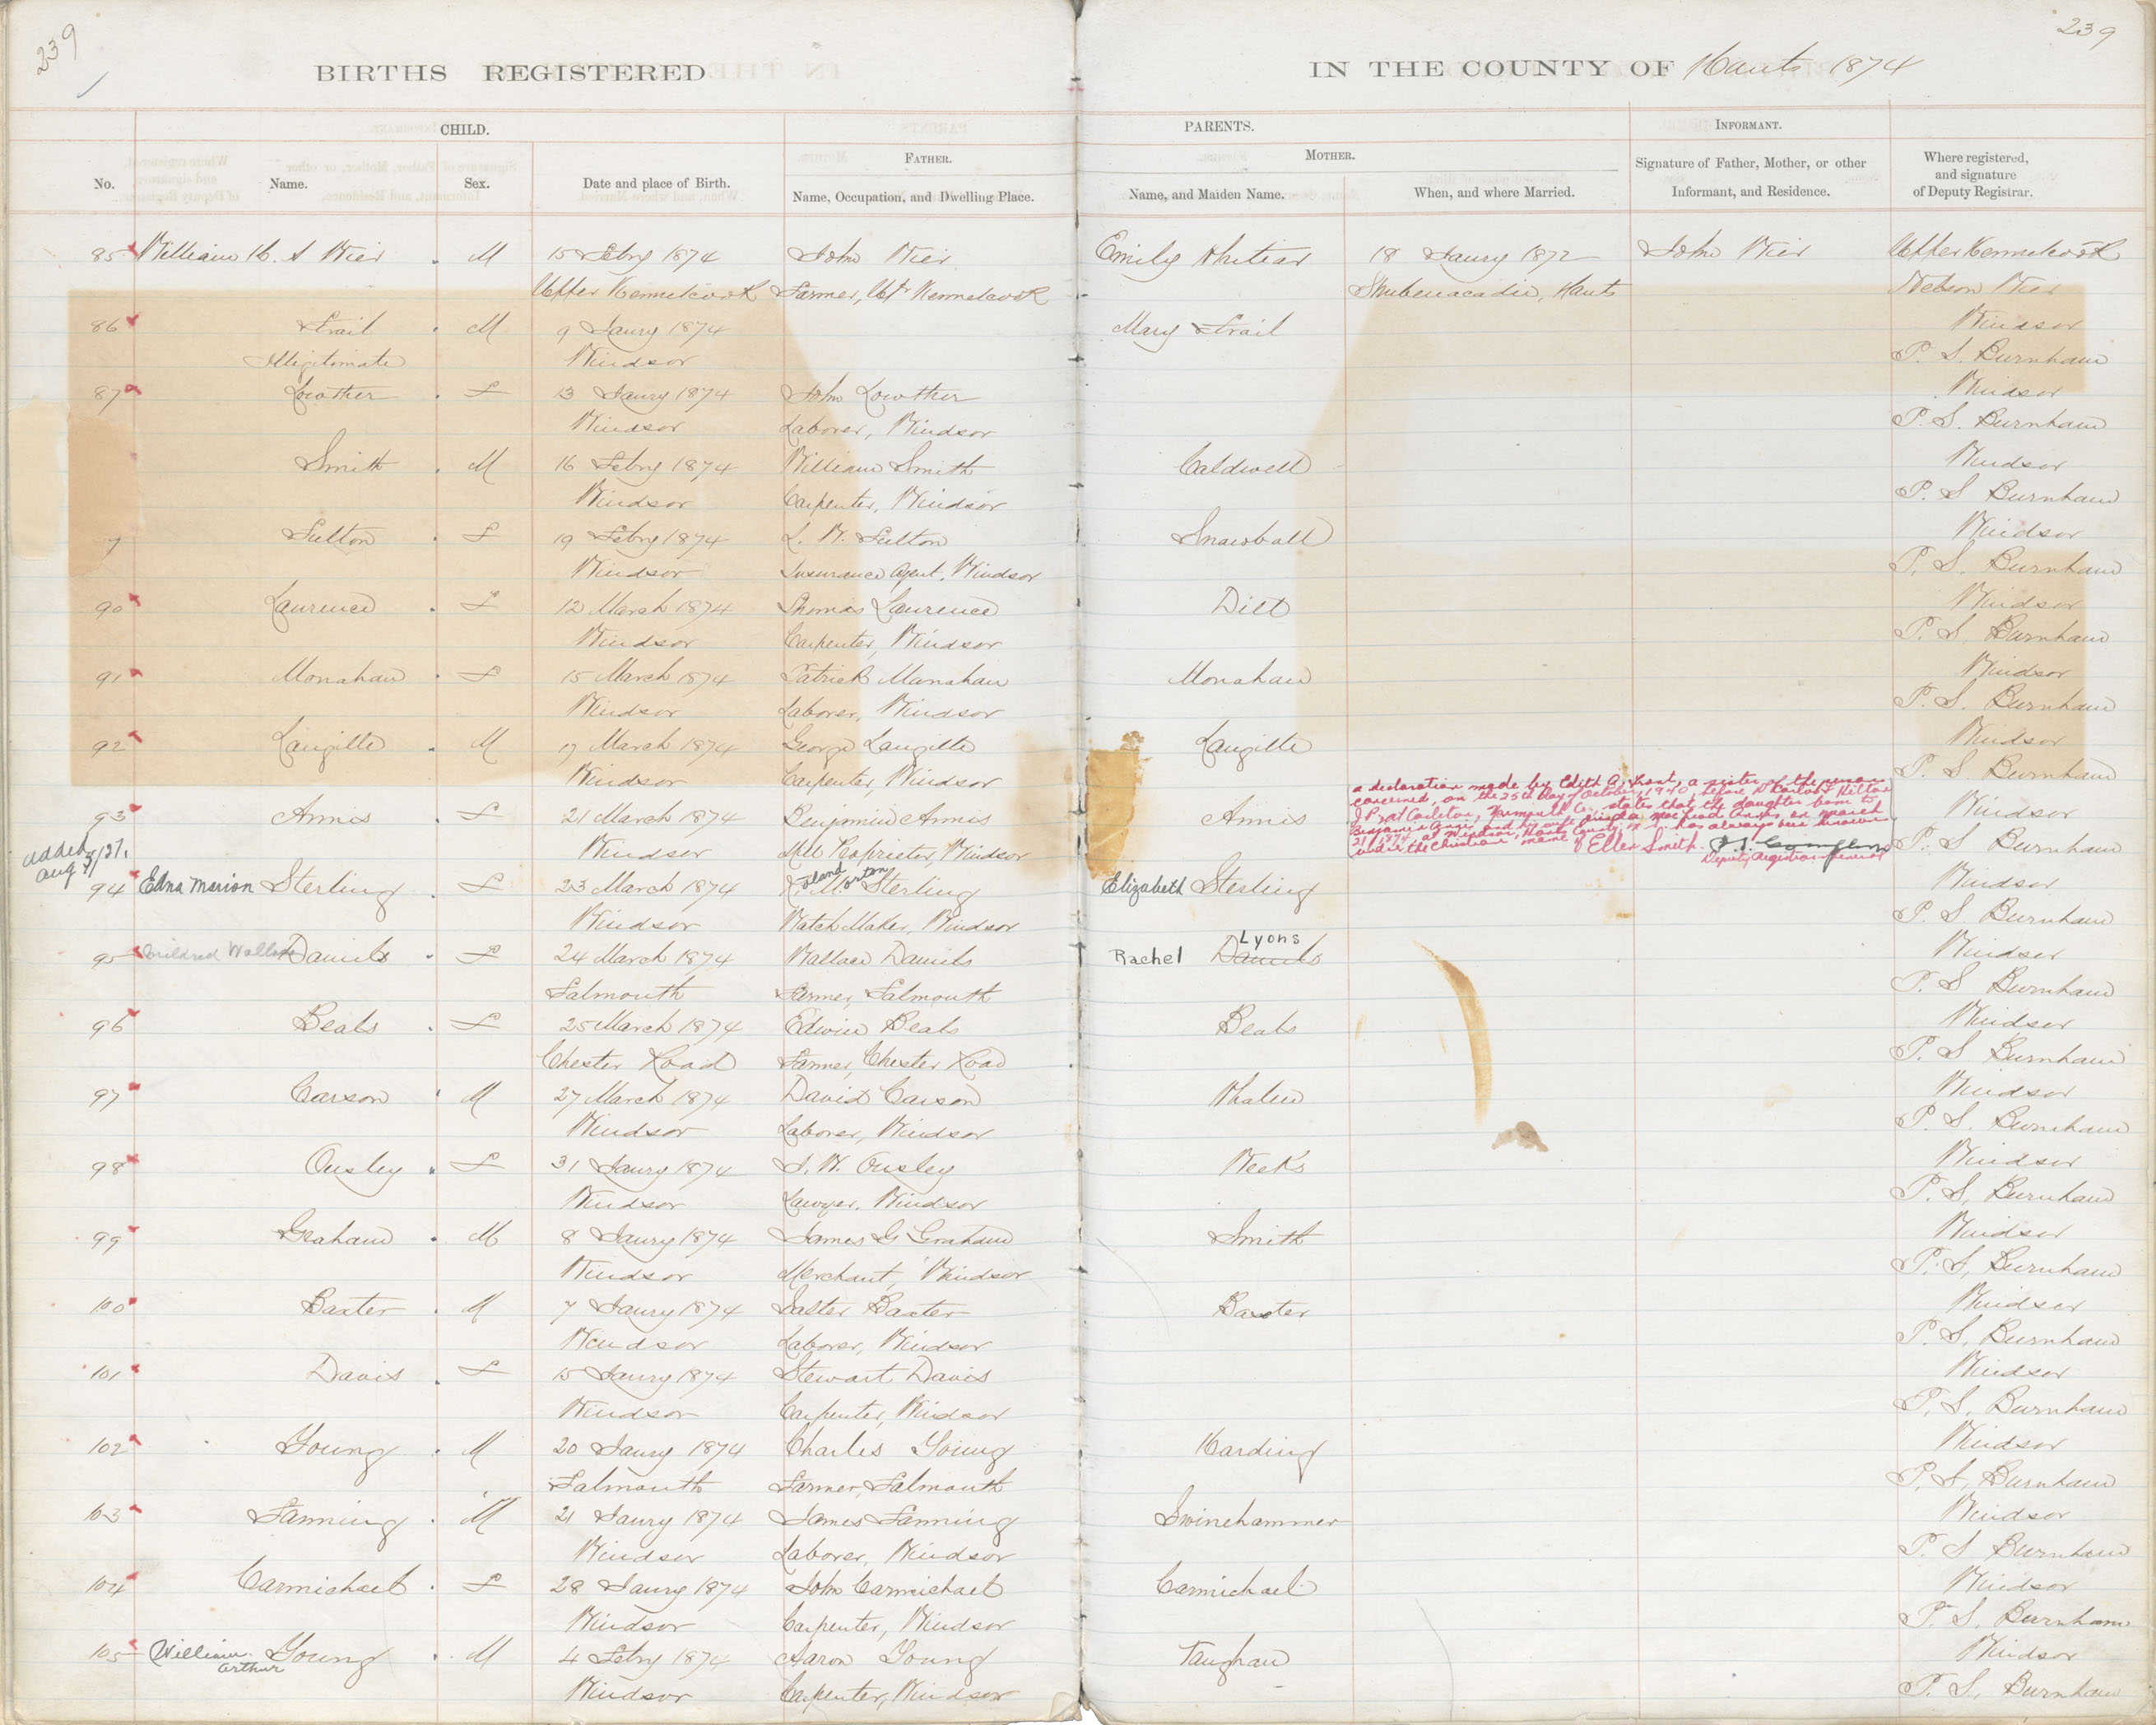 239
239
BIRTHS REGISTERED
IN THE COUNTY OF Hants 1874
CHILD.
PARENTS.
INFORMANT.
No.
Name.
Sex.
Date and place of Birth.
FATHER.
Name, Occupation, and Dwelling Place.
MOTHER.
Name, and Maiden Name.
When, and where Married.
Signature of Father, Mother, or other
Informant, and Residence.
Where registered,
and signature
of Deputy Registrar.
85 William H. S Wier M 15 Febry 1874 John Wier Emily Whitier 18 Jaury 1872 John Wier Upper Kennetcook
Upper Kennetcook Farmer, Upr Kennetcook Shubenacadie, Hants Nelson Wier
86 Frail M 9 Jaury 1874 Mary Frail Windsor
Illegitimate Windsor P. S. Burnham
87 Lowther F 13 Jaury 1874 John Lowther Windsor
Windsor Laborer, Windsor P. S. Burnham
Smith M 16 Febry 1874 William Smith Caldwell Windsor
Windsor Carpenter, Windsor P. S Burnham
Fulton F 19 Febry 1874 L. W. Fulton Snowball Windsor
Windsor Insurance Agent, Windsor P. S. Burnham
90 Laurence F 12 March 1874 Thomas Laurence Dill Windsor
Windsor Carpenter, Windsor P. S. Burnham
91 Monahan F 15 March 1874 Patrick Manahan Monahan Windsor
Windsor Laborer, Windsor P. S. Burnham
92 Langille M 17 March 1874 George Langille Langille Windsor
Windsor Carpenter, Windsor P. S. Burnham
a declaration made by Edith A. , a sister of the person
concerned, on the 25th day of October, 1940, before Hilton
J.P. at Carleton, Yarmouth Co., states that the daughter born to
Benjamin Annis and his wife Annis, on March
21/1874, at Windsor, Hants County, N.S. has always been known
under the Christian name of Ellen Smith.
Deputy Registrar General
93 Annis F 21 March 1874 Benjamin Annis Annis Windsor
Windsor Mill Proprietor, Windsor P. S. Burnham
added
Aug
94 Edna Marion Sterling F 23 March 1874 Roland Morton Sterling Elizabeth Sterling Windsor
Windsor Watch Maker, Windsor P. S. Burnham
Lyons
95 Mildred Wallace Daniels F 24 March 1874 Wallace Daniels Rachel Daniels Windsor
Falmouth Farmer, Falmouth P. S Burnham
96 Beals F 25 March 1874 Edwin Beals Beals Windsor
Chester Road Farmer, Chester Road P. S Burnham
97 Carson M 27 March 1874 David Carson Whalen Windsor
Windsor Laborer, Windsor P. S. Burnham
98 Ousley F 31 Jaury 1874 J. W. Ousley Weeks Windsor
Windsor Lawyer, Windsor P. S. Burnham
99 Graham M 8 Jaury 1874 James G Graham Smith Windsor
Windsor Merchant, Windsor P. S. Burnham
100 Baxter M 7 Jaury 1874 Salter Baxter Baxter Windsor
Windsor Laborer, Windsor P. S. Burnham
101 Davis F 15 Jaury 1874 Stewart Davis Windsor
Windsor Carpenter, Windsor P. S. Burnham
102 Young M 20 Jaury 1874 Charles Young Harding Windsor
Falmouth Farmer, Falmouth P. S. Burnham
103 Fanning M 21 Jaury 1874 James Fanning Swinehammer Windsor
Windsor Laborer, Windsor P. S Burnham
104 Carmichael F 28 Jaury 1874 John Carmichael Carmichael Windsor
Windsor Carpenter, Windsor P. S. Burnham
105 William Arthur Young M 4 Febry 1874 Aaron Young Vaughan Windsor
Windsor Carpenter, Windsor P. S. Burnham